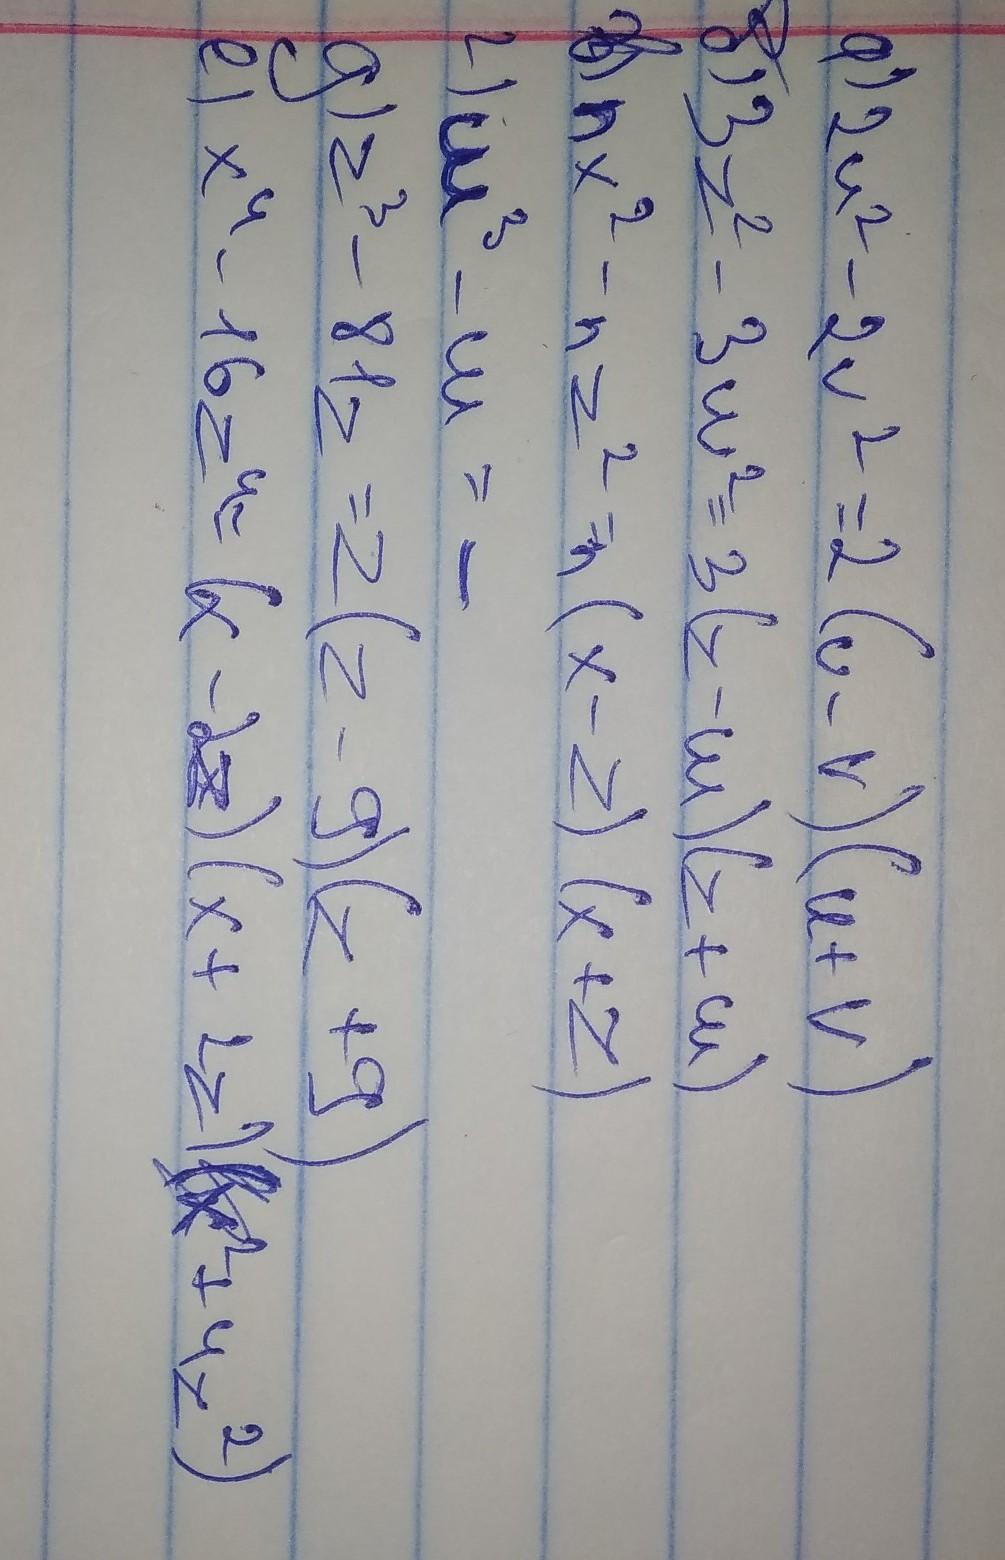 а) 2u² - 2v² = 2(u - v)(u + v)
б) 3z² - 3u² = 3(z - u)(z + u)
в) nx² - nz² = n(x - z)(x + z)
г) u³ - u = -
д) z³ - 81z = z(z - 9)(z + 9)
е) x⁴ - 16z⁴ = (x - 2z)(x + 2z)(x² + 4z²)